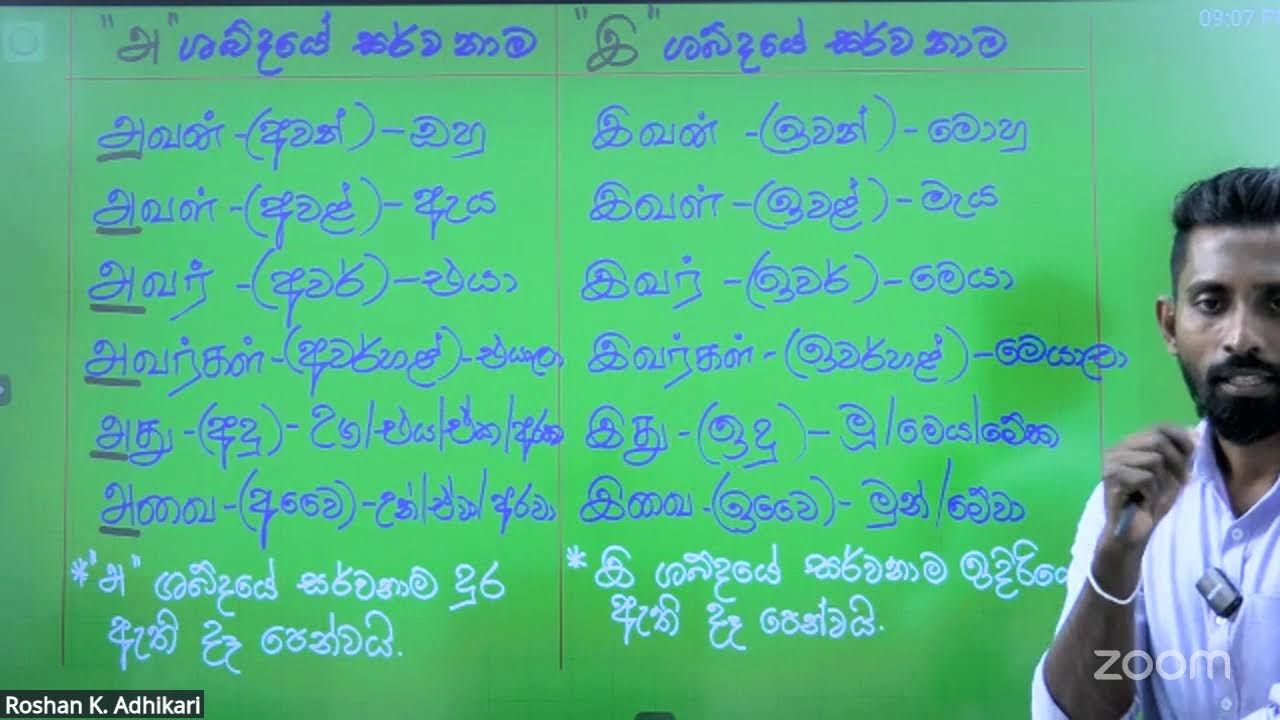 09:07
"அ" ශබ්දයේ සර්වනාම
"இ" ශබ්දයේ සර්වනාම
அவன் -(අවන්) - ඔහු
இவன் -(ඉවන්) - මොහු
அவள் -(අවළ්) - ඇය
இவள் -(ඉවළ්) - මැය
அவர் -(අවර්) - එයා
இவர் -(ඉවර්) - මෙයා
அவர்கள் -(අවර්හළ්) - එයාලා
இவர்கள் -(ඉවර්හළ්) - මෙයාලා
அது -(අදු) - උග/එය/ඒක/අරක
இது -(ඉදු) - මූ/මෙය/මේක
அவை -(අවෛ) - උන්/ඒවා/අරවා
இவை -(ඉවෛ) - මුන්/මේවා
* "அ" ශබ්දයේ සර්වනාම දුර
ඇති දෑ පෙන්වයි.
* இ ශබ්දයේ සර්වනාම
ඇති දෑ පෙන්වයි.
zoom
Roshan K. Adhikari